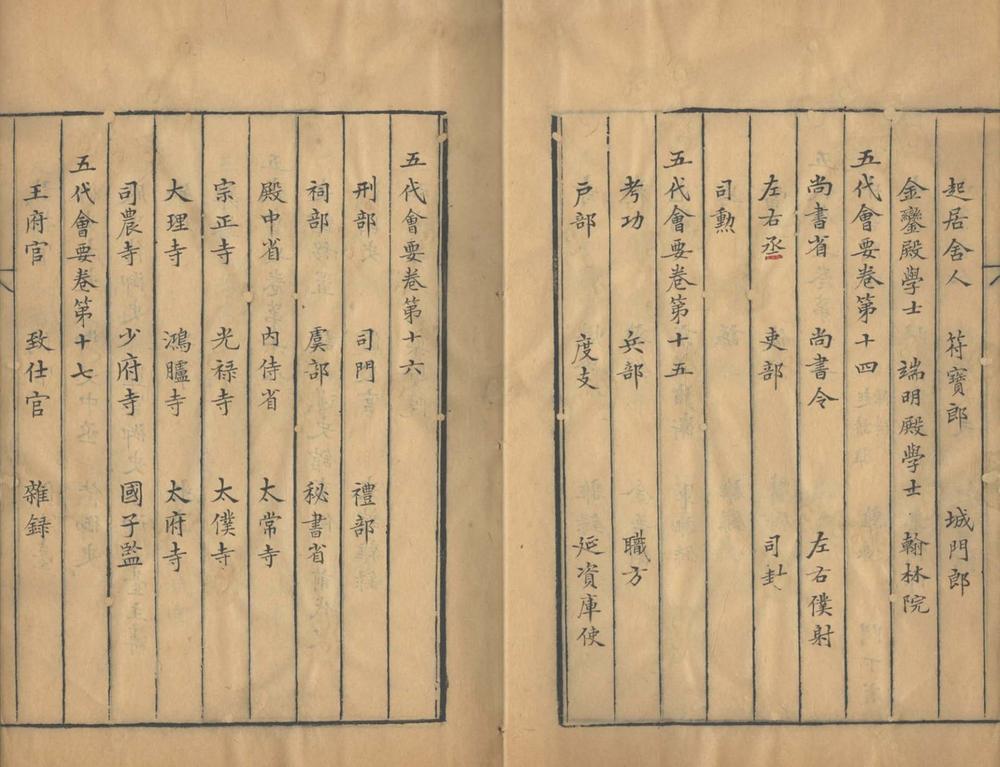 起居舍人 符寶郎 城門郎
金鑾殿學士 端明殿學士 翰林院
五代會要卷第十四
尚書省 尚書令 左右僕射
左右丞 吏部 司封
司勳
五代會要卷第十五
考功 兵部 職方
戶部 度支 延資庫使
五代會要卷第十六
刑部 司門 禮部
祠部 虞部 秘書省
殿中省 內侍省 太常寺
宗正寺 光禄寺 太僕寺
大理寺 鴻臚寺 太府寺
司農寺 少府寺 國子監
五代會要卷第十七
王府官 致仕官 雜録